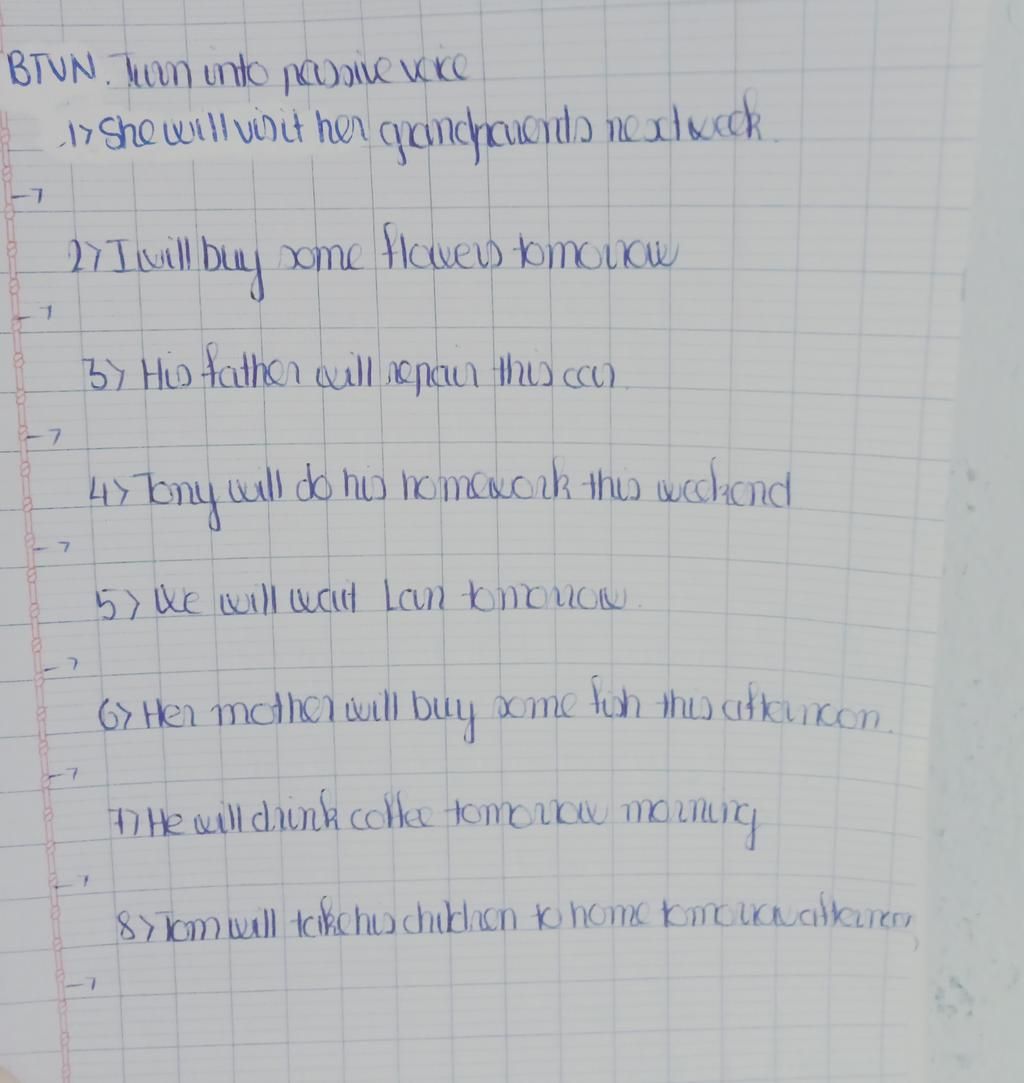 BTVN. Turn into passive voice
1> She will visit her grandparents next week.
→
2> I will buy some flowers tomorrow
→
3> His father will repair this car.
→
4> Tony will do his homework this weekend
→
5> We will wait Lan tomorrow.
→
6> Her mother will buy some fish this afternoon.
→
7> He will drink coffee tomorrow morning
→
8> Tom will take his children to home tomorrow afternoon
→